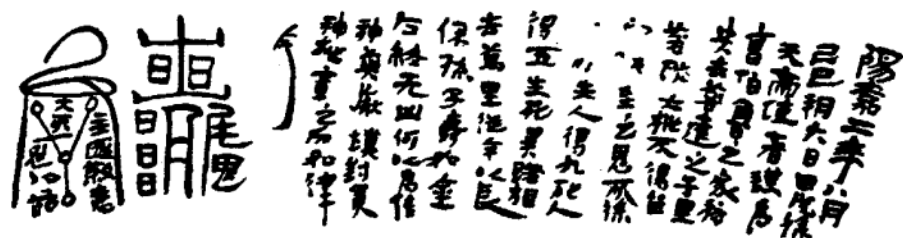 陽嘉二年八月
己巳朔六日甲戌徐
天帝使者謹為
曹伯魯之家移
央去咎遠之千里
咎殃大桃不得留
至之鬼所徐
生人得九死人
得五生死異路相
去萬里從今以長
保孫子壽如金
石終无凶何以為信
神藥厭填封黃
神越章之印如律
令
日日
日
日
日
月
尾鬼
大天一
主逐敇惡
鬼以節